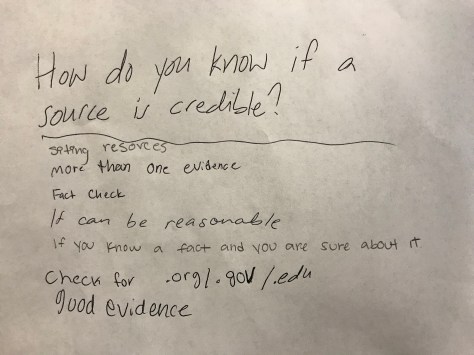 How do you know if a
source is credible?
sating resorces
more than one evidence
Fact Check
It can be reasonable
If you know a fact and you are sure about it
Check for .org/.gov/.edu
good evidence